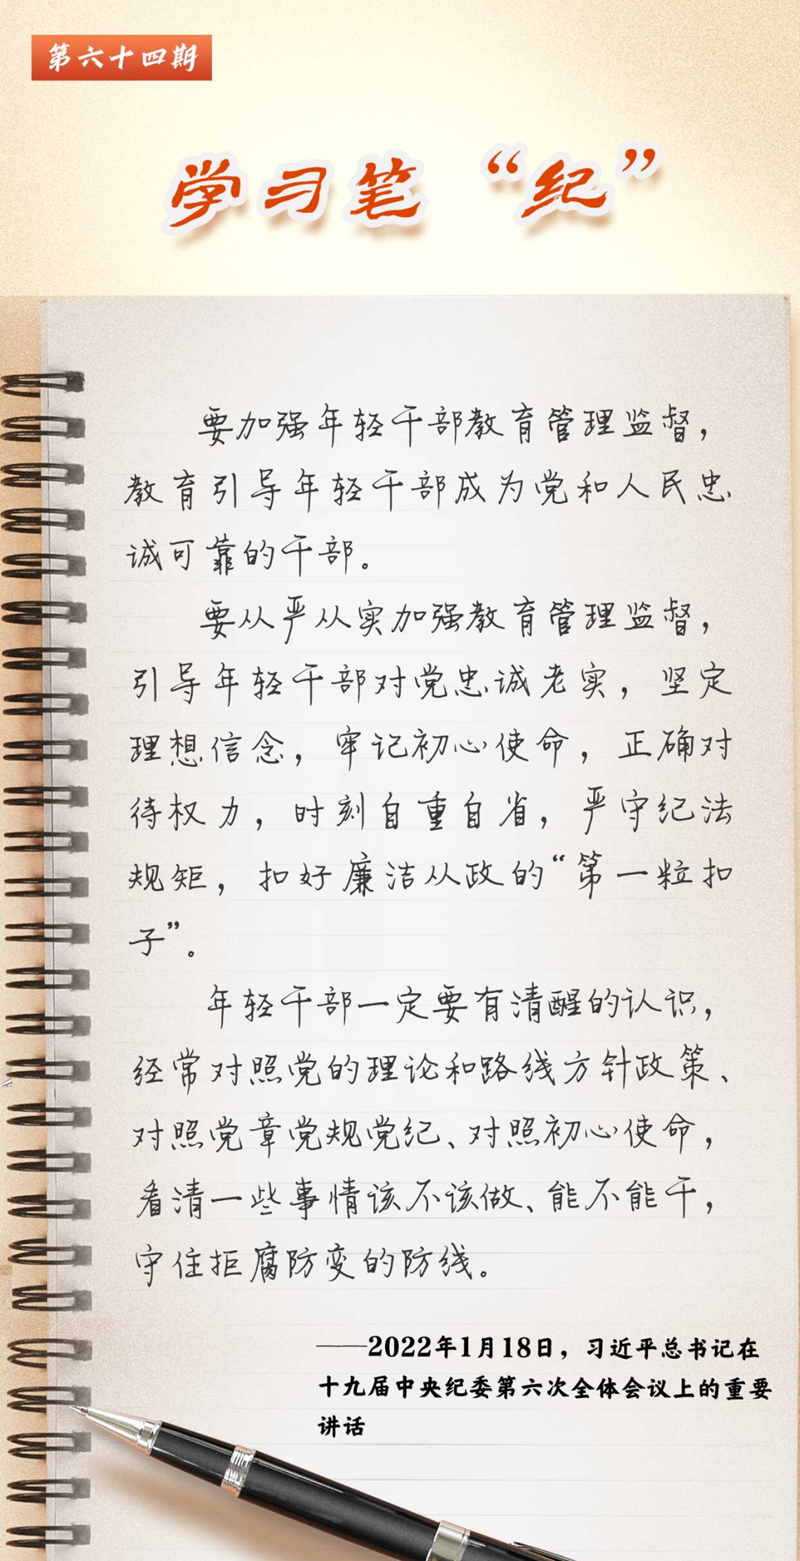 第六十四期
学习笔“纪”
要加强年轻干部教育管理监督，
教育引导年轻干部成为党和人民忠
诚可靠的干部。
要从严从实加强教育管理监督，
引导年轻干部对党忠诚老实，坚定
理想信念，牢记初心使命，正确对
待权力，时刻自重自省，严守纪法
规矩，扣好廉洁从政的“第一粒扣
子”。
年轻干部一定要有清醒的认识，
经常对照党的理论和路线方针政策、
对照党章党规党纪、对照初心使命，
看清一些事情该不该做、能不能干，
守住拒腐防变的防线。
——2022年1月18日，习近平总书记在
十九届中央纪委第六次全体会议上的重要
讲话